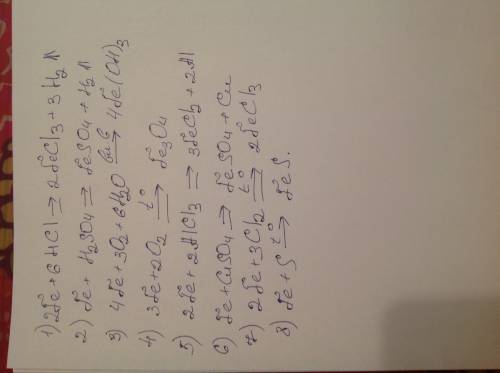 1) 2Fe + 6HCl ⇒ 2FeCl3 + 3H2↑
2) Fe + H2SO4 ⇒ FeSO4 + H2↑
3) 4Fe + 3O2 + 6H2O ⇒ 4Fe(OH)3
4) 3Fe + 2O2 t°⇒ Fe3O4
5) 2Fe + 2AlCl3 ⇒ 3FeCl2 + 2Al
6) Fe + CuSO4 ⇒ FeSO4 + Cu
7) 2Fe + 3Cl2 t°⇒ 2FeCl3
8) Fe + S t°⇒ FeS.